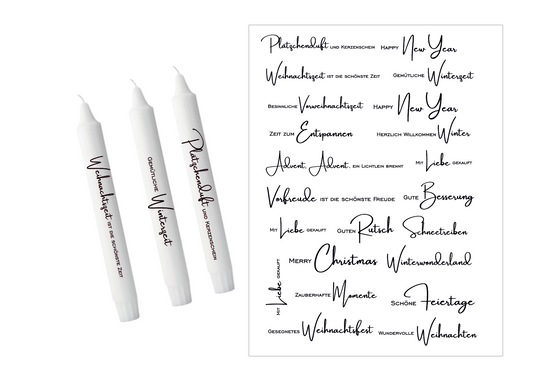 Weihnachtszeit ist die schönste Zeit
Gemütliche Winterzeit
Plätzchenduft und Kerzenschein
Plätzchenduft und Kerzenschein Happy New Year
Weihnachtszeit ist die schönste Zeit Gemütliche Winterzeit
Besinnliche Vorweihnachtszeit Happy New Year
Zeit zum Entspannen Herzlich Willkommen Winter
Advent, Advent, ein Lichtlein brennt Mit Liebe gekauft
Vorfreude ist die schönste Freude Gute Besserung
Mit Liebe gekauft Guten Rutsch Schneetreiben
Merry Christmas Winterwonderland
Mit Liebe gekauft
Zauberhafte Momente Schöne Feiertage
Gesegnetes Weihnachtsfest Wundervolle Weihnachten